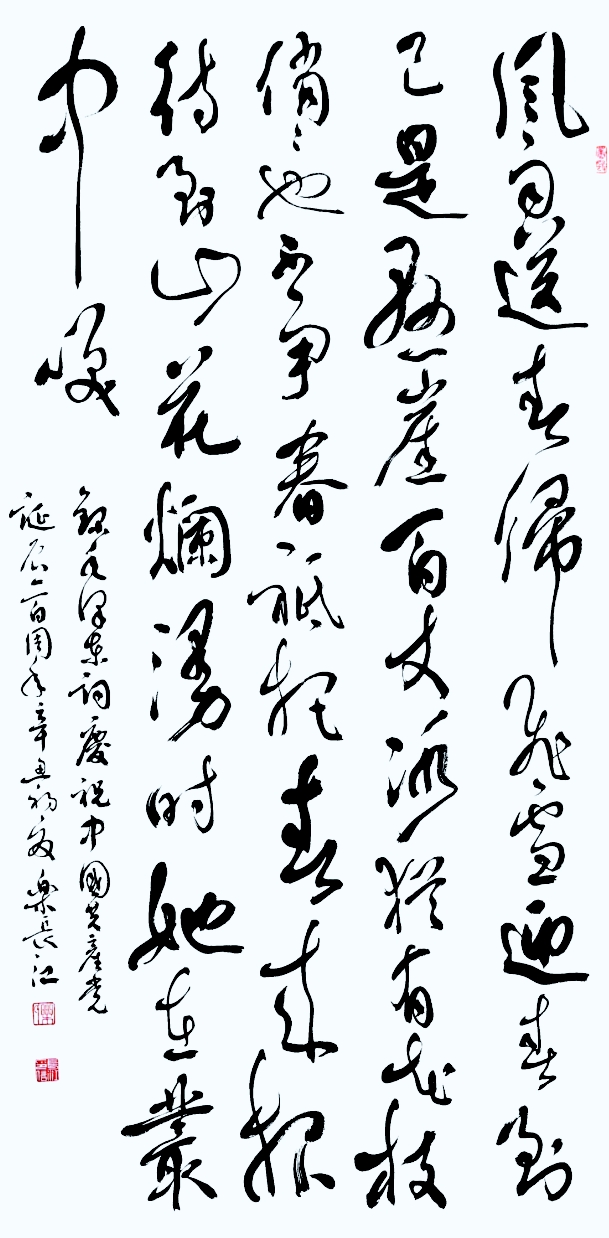 風雨送春歸飛雪迎春到
已是懸崖百丈冰猶有花枝
俏〻也不爭春祗把春来報
待到山花爛漫时她在叢
中咲
錄毛澤東詞慶祝中國共産党
誕辰一百周年辛丑初夏樂長江